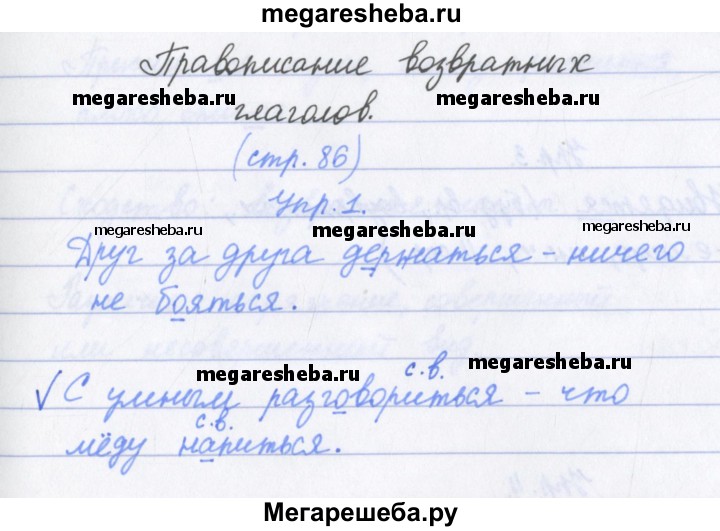 megaresheba.ru
Правописание возвратных
megaresheba.ru megaresheba.ru
глаголов.
(стр. 86)
Упр. 1.
megaresheba.ru megaresheba.ru megaresheba.ru
Друг за друга держаться – ничего
не бояться.
megaresheba.ru с.в. megaresheba.ru
√ С умным разговориться – что
с.в.
мёду напиться.
Мегарешеба.ру